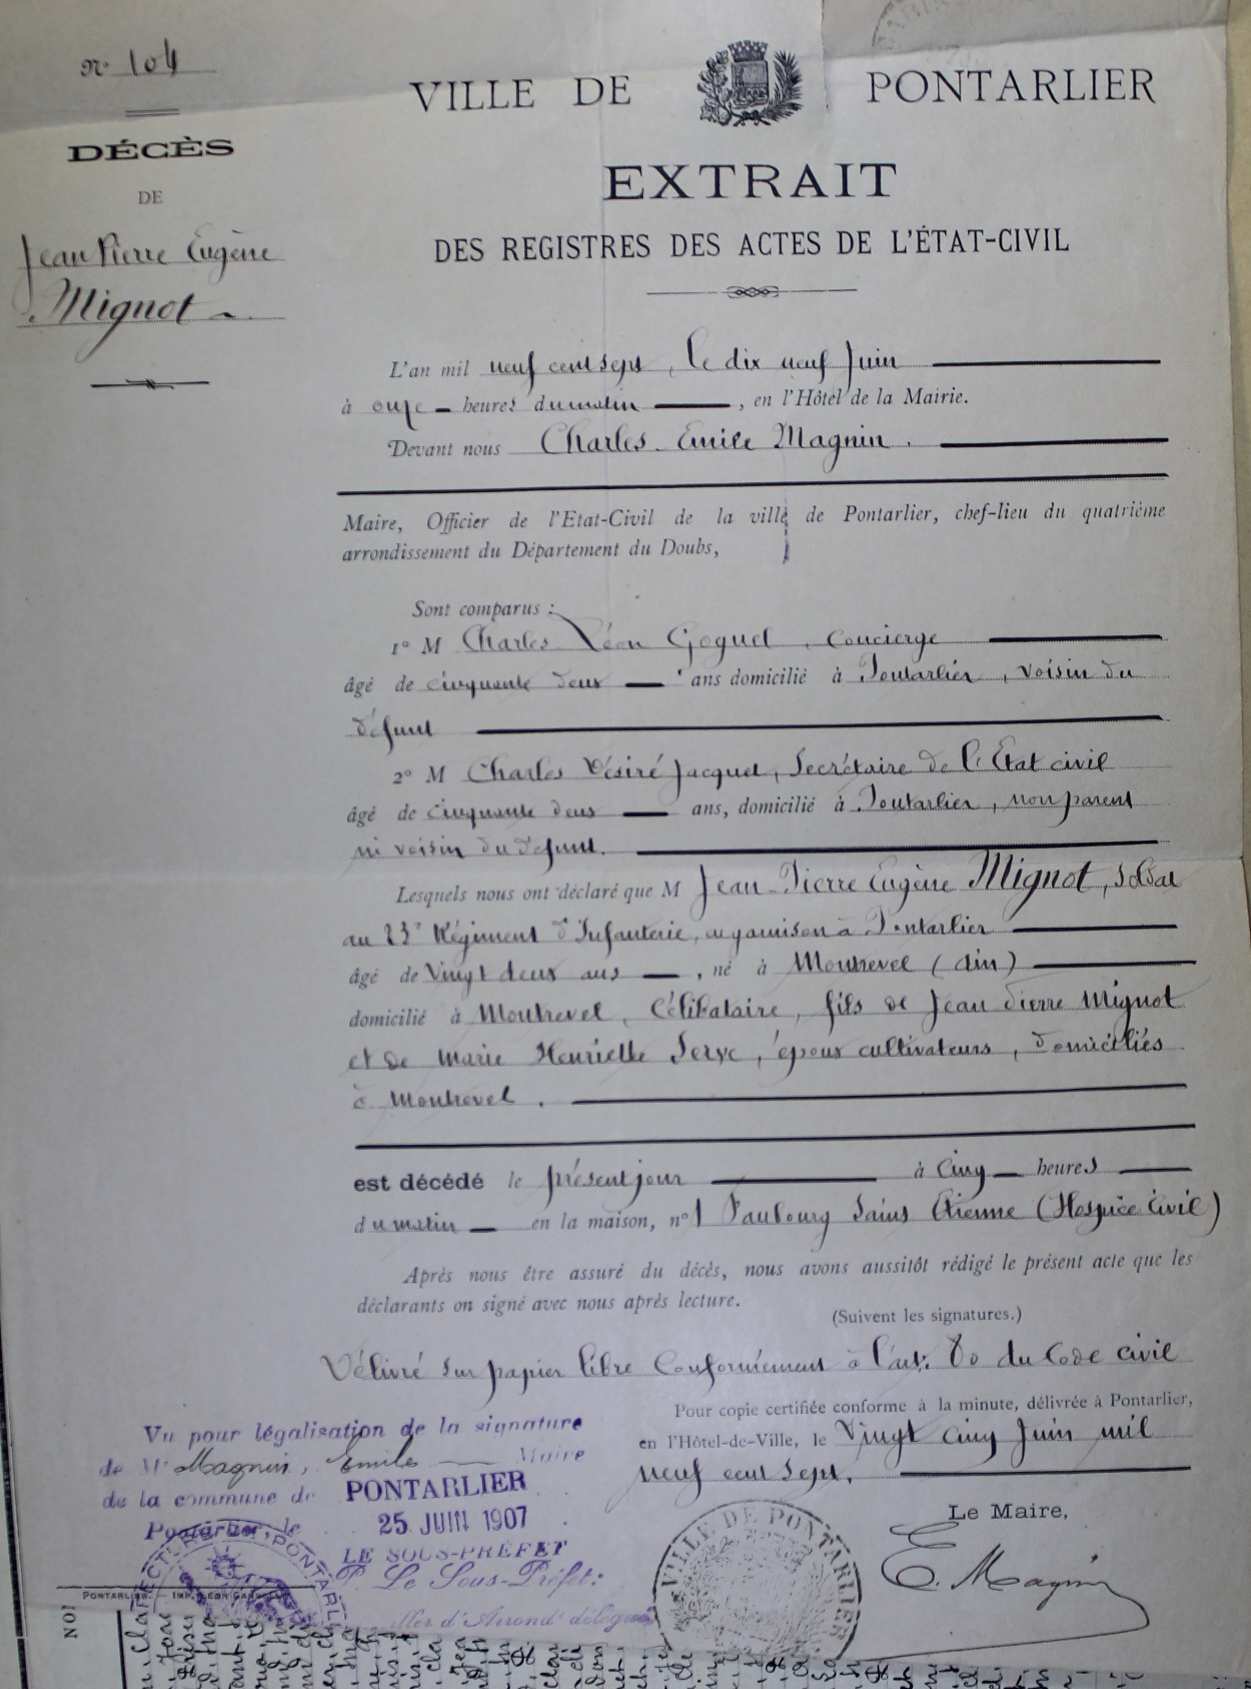 N° 104
DÉCÈS
DE
Jean Pierre Eugène
Mignot
VILLE DE PONTARLIER
EXTRAIT
DES REGISTRES DES ACTES DE L'ÉTAT-CIVIL
L'an mil neuf cent sept, le dix neuf Juin
à onze heures du matin, en l'Hôtel de la Mairie.
Devant nous Charles Emile Magnin.
Maire, Officier de l'Etat-Civil de la ville de Pontarlier, chef-lieu du quatrième
arrondissement du Département du Doubs,
Sont comparus :
1° M Charles Léon Goguel, Concierge
âgé de cinquante deux ans domicilié à Pontarlier, voisin du
défunt
2° M Charles Désiré Jacquet, Secrétaire de l'Etat civil
âgé de cinquante deux ans, domicilié à Pontarlier, non parent
ni voisin du défunt.
Lesquels nous ont déclaré que M Jean-Pierre Eugène Mignot, soldat
au 23e Régiment d'Infanterie, en garnison à Pontarlier
âgé de Vingt deux ans, né à Montrevel (Ain)
domicilié à Montrevel, Célibataire, fils de Jean Pierre Mignot
et de Marie Henriette Serve, époux cultivateurs, domiciliés
à Montrevel.
est décédé le présent jour à Cinq heures
du matin en la maison, n° 1 Faubourg Saint Etienne (Hospice Civil)
Après nous être assuré du décès, nous avons aussitôt rédigé le présent acte que les
déclarants on signé avec nous après lecture.
(Suivent les signatures.)
Délivré sur papier libre Conformément à l'art. 80 du Code civil
Pour copie certifiée conforme à la minute, délivrée à Pontarlier,
en l'Hôtel-de-Ville, le Vingt cinq Juin mil
neuf cent sept.
Le Maire,
E. Magnin
VILLE DE PONTARLIER
Vu pour légalisation de la signature
de Mr Magnin, Emile Maire
de la commune de PONTARLIER
Pontarlier, le 25 JUIN 1907
LE SOUS-PRÉFET
P. Le Sous-Préfet:
d'Arrondt délégué
PONTARLIER. — IMP.